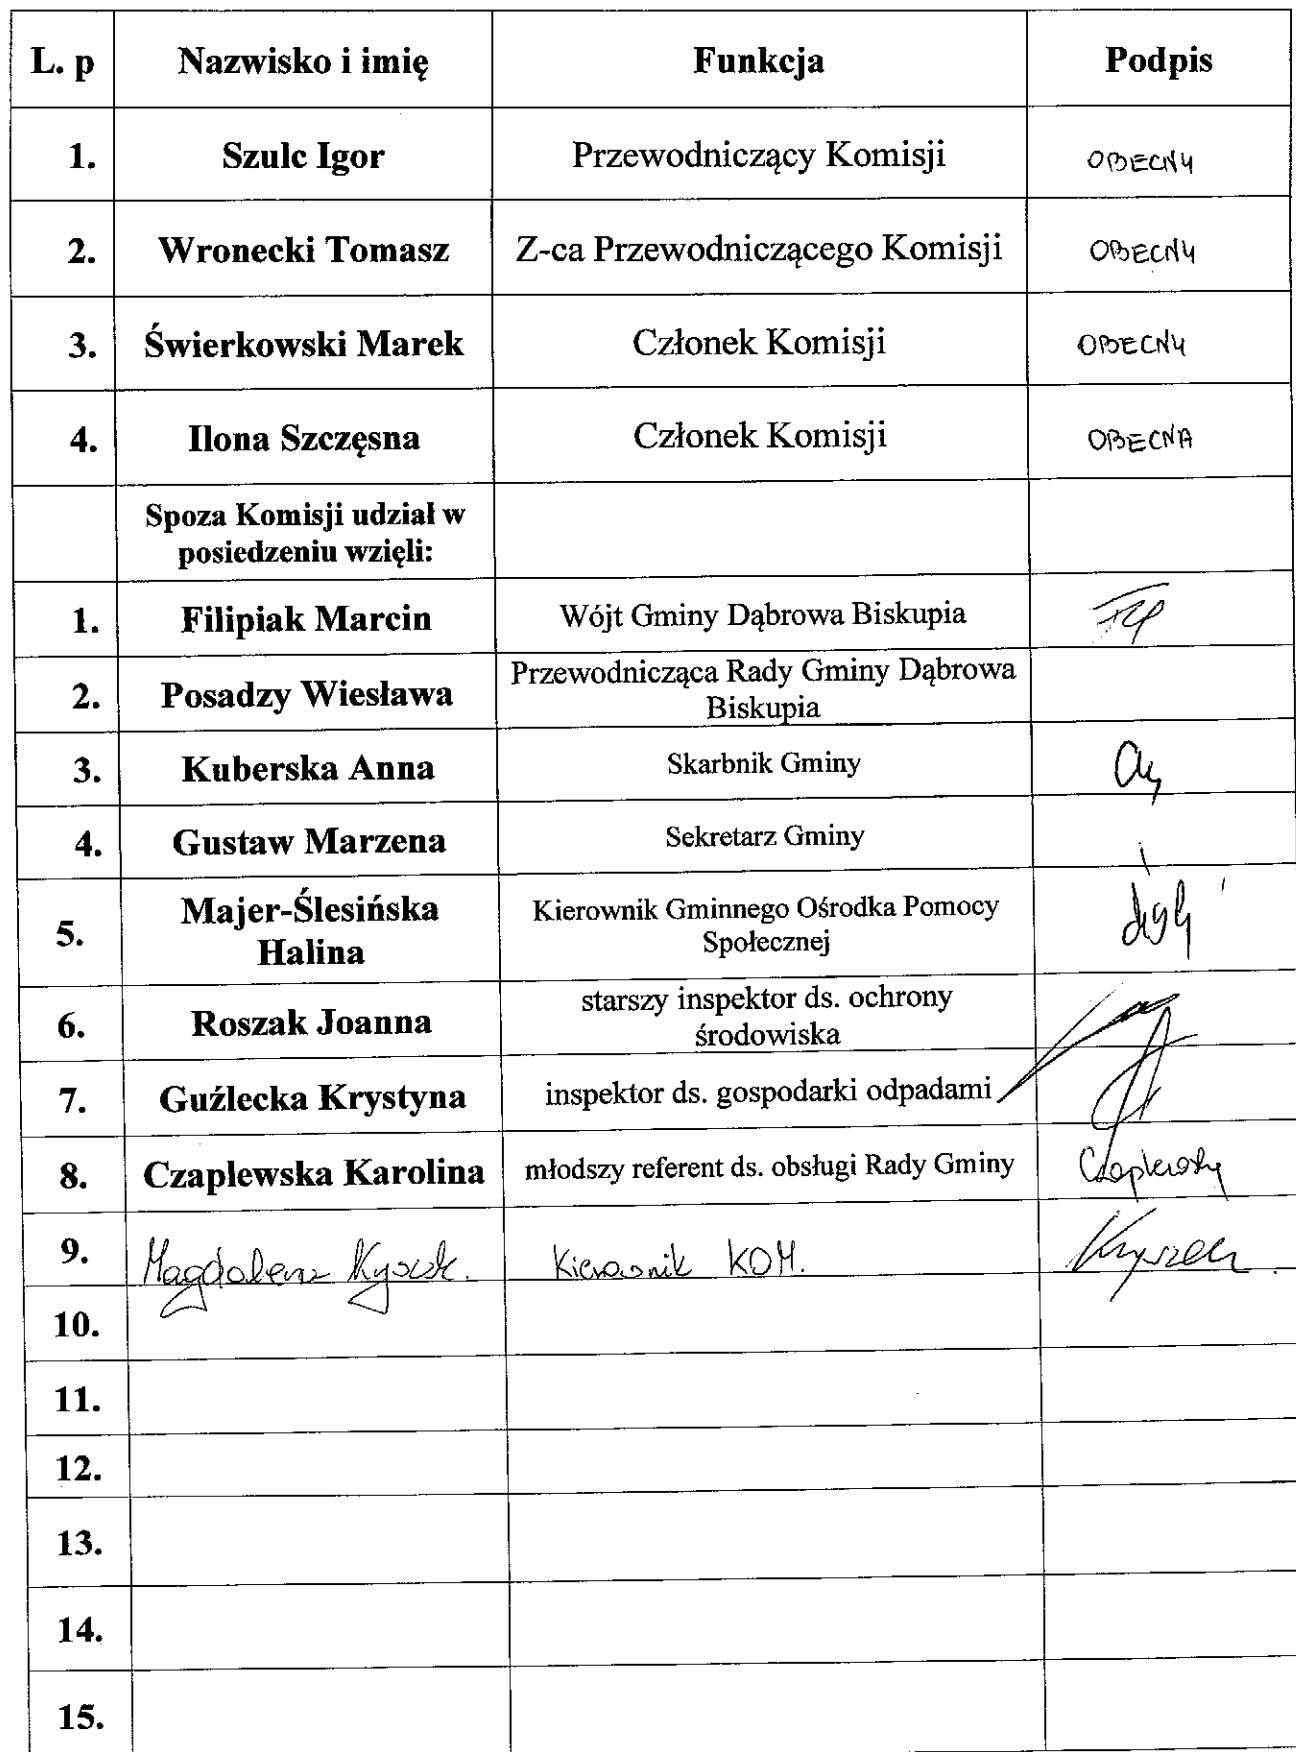 L. p Nazwisko i imię Funkcja Podpis
1. Szulc Igor Przewodniczący Komisji OBECNY
2. Wronecki Tomasz Z-ca Przewodniczącego Komisji OBECNY
3. Świerkowski Marek Członek Komisji OBECNY
4. Ilona Szczęsna Członek Komisji OBECNA
Spoza Komisji udział w
posiedzeniu wzięli:
1. Filipiak Marcin Wójt Gminy Dąbrowa Biskupia
2. Posadzy Wiesława Przewodnicząca Rady Gminy Dąbrowa
Biskupia
3. Kuberska Anna Skarbnik Gminy
4. Gustaw Marzena Sekretarz Gminy
5. Majer-Ślesińska
Halina
Kierownik Gminnego Ośrodka Pomocy
Społecznej
6. Roszak Joanna starszy inspektor ds. ochrony
środowiska
7. Guźlecka Krystyna inspektor ds. gospodarki odpadami
8. Czaplewska Karolina młodszy referent ds. obsługi Rady Gminy
9. Magdalena Kierownik KOM.
10.
11.
12.
13.
14.
15.